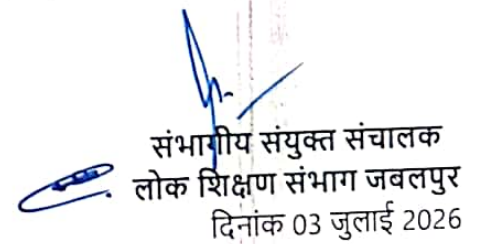 संभागीय संयुक्त संचालक
लोक शिक्षण संभाग जबलपुर
दिनांक 03 जुलाई 2026